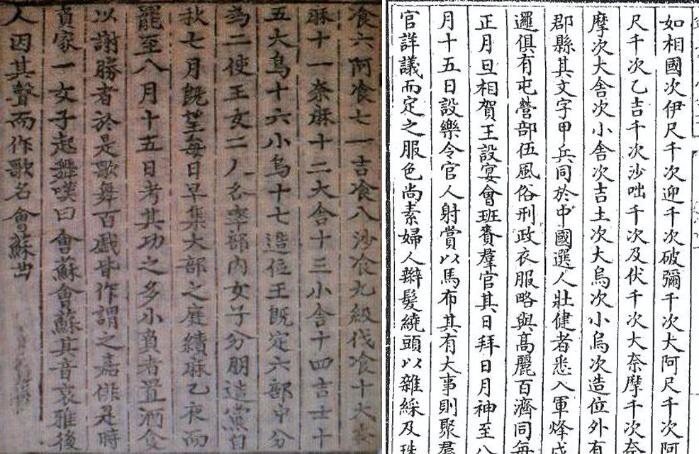 飡六阿飡七一吉飡八沙飡九級伐飡十大奈
麻十一奈麻十二大舍十三小舍十四吉士十
五大烏十六小烏十七造位王旣定六部中分
爲二使王女二人各率部內女子分朋造黨自
秋七月旣望每日早集大部之庭績麻乙夜而
罷至八月十五日考其功之多小負者置酒食
以謝勝者於是歌舞百戱皆作謂之嘉俳是時
負家一女子起舞嘆曰會蘇會蘇其音哀雅後
人因其聲而作歌名會蘇曲
如相國次伊尺干次迎干次破彌干次大阿尺干次阿
尺干次乙吉干次沙咄干次及伏干次大奈摩干次奈
摩次大舍次小舍次吉土次大烏次小烏次造位外有
郡縣其文字甲兵同於中國選人壯健者悉入軍烽戍
邏俱有屯營部伍風俗刑政衣服略與髙麗百濟同每
正月旦相賀王設宴會班賚羣官其日拜日月神至八
月十五日設樂令官人射賞以馬布其有大事則聚羣
官詳議而定之服色尚素婦人辮髮繞頭以雜綵及珠